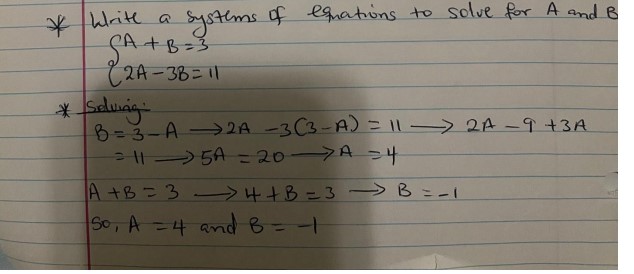 * Write a systems of equations to solve for A and B
{ A + B = 3
{ 2A - 3B = 11
* Solving:
B = 3 - A → 2A - 3(3 - A) = 11 → 2A - 9 + 3A
= 11 → 5A = 20 → A = 4
A + B = 3 → 4 + B = 3 → B = -1
So, A = 4 and B = -1